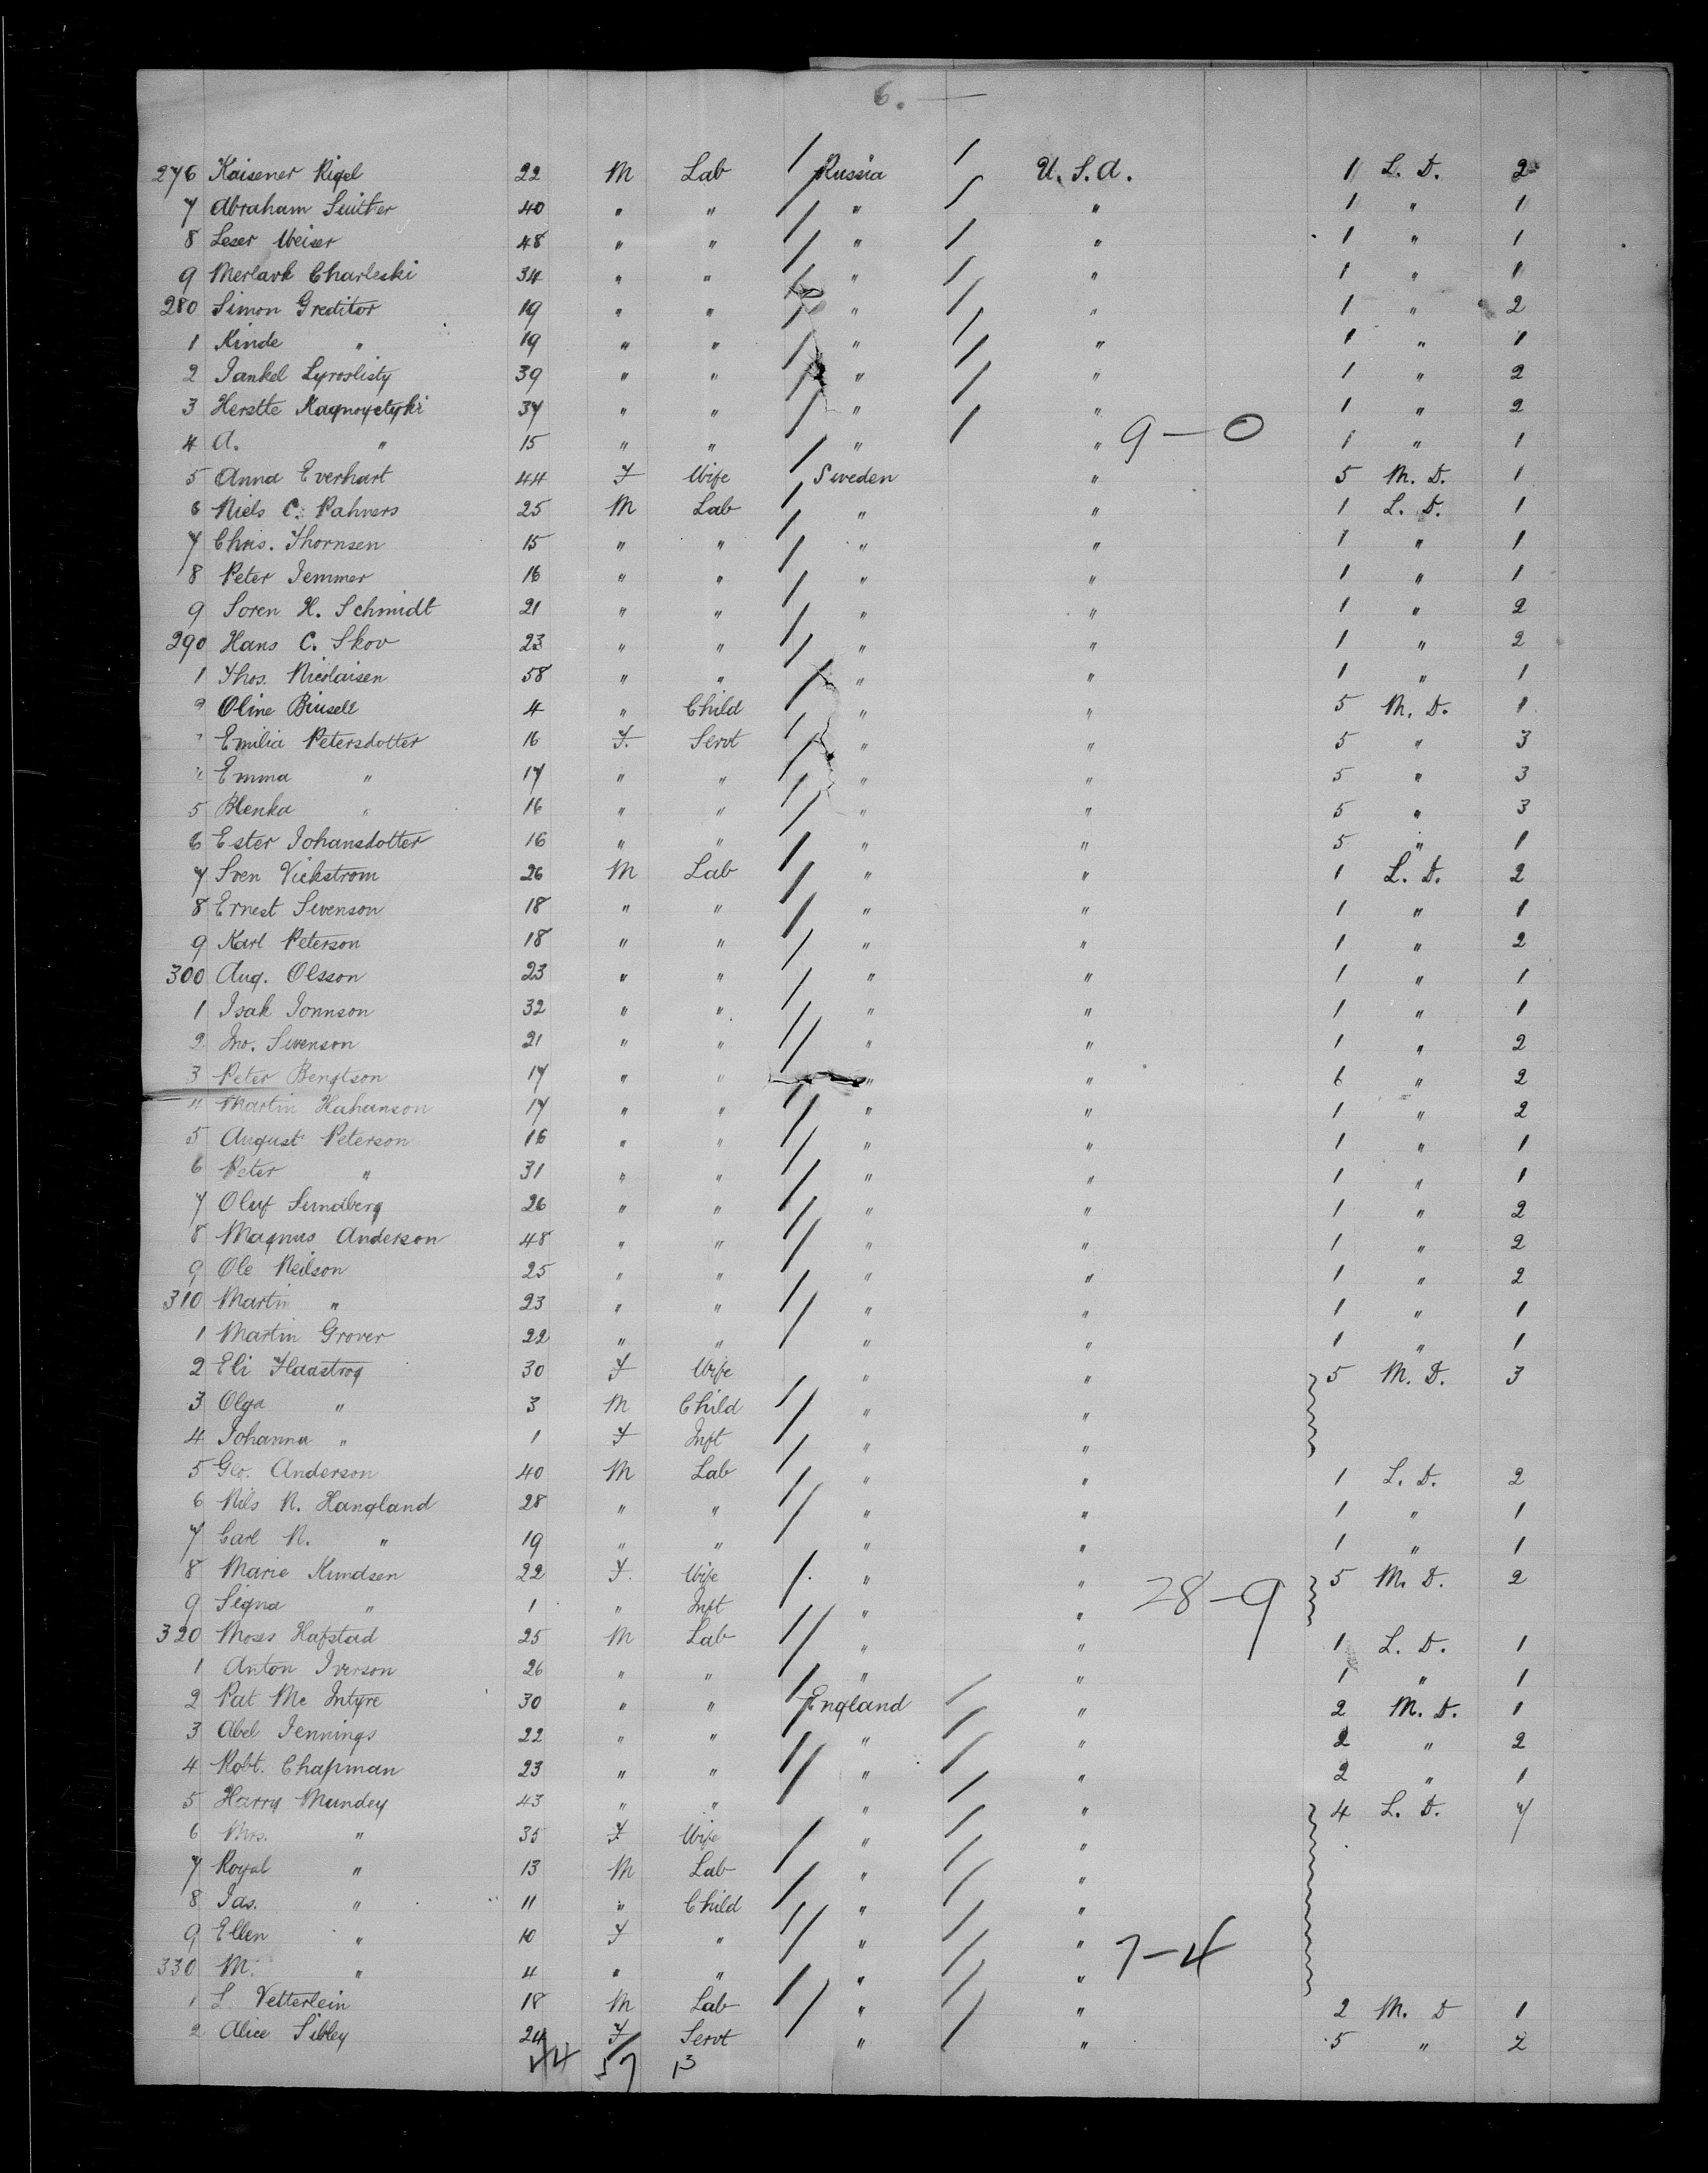 6. —
276 Kaisener Rigel 22 M Lab Russia U.S.A. 1 L. D. 2
7 Abraham Suither 40 " " " " 1 " 1
8 Leser Weiser 48 " " " " 1 " 1
9 Merlavk Charleski 34 " " " " 1 " 1
280 Simon Greditor 19 " " " " 1 " 2
1 Kinde " 19 " " " " 1 " 1
2 Jankel Lyroslisty 39 " " " " 1 " 2
3 Herstte 37 " " " " 1 " 2
4 A. " 15 " " " " 9 — 0 1 " 1
5 Anna Everhart 44 F Wife Sweden " 5 M. D. 1
6 Niels C. Pahvers 25 M Lab " " 1 L. D. 1
7 Chris. Thornsen 15 " " " " 1 " 1
8 Peter Jemmer 16 " " " " 1 " 1
9 Soren H. Schmidt 21 " " " " 1 " 2
290 Hans C. Skov 23 " " " " 1 " 2
1 Thos. Nicolaisen 58 " " " " 1 " 1
2 Oline 4 " Child " " 5 M. D. 1
Emilia Petersdotter 16 F. Servt " " 5 " 3
Emma " 17 " " " " 5 " 3
5 Blenka " 16 " " " " 5 " 3
6 Ester Johansdotter 16 " " " " 5 " 1
7 Sven Vickstrom 26 M Lab " " 1 L. D. 2
8 Ernest Swenson 18 " " " " 1 " 1
9 Karl Peterson 18 " " " " 1 " 2
300 Aug. Olsson 23 " " " " 1 " 1
1 Isak Jonnson 32 " " " " 1 " 1
2 Jno. Swenson 21 " " " " 1 " 2
3 Peter Bengtson 17 " " " " 6 " 2
4 Martin Hahanson 17 " " " " 1 " 2
5 August Peterson 16 " " " " 1 " 1
6 Peter " 31 " " " " 1 " 1
7 Oluf Sundberg 26 " " " " 1 " 2
8 Magnus Anderson 48 " " " " 1 " 2
9 Ole Neilson 25 " " " " 1 " 2
310 Martin " 23 " " " " 1 " 1
1 Martin Grover 22 " " " " 1 " 1
2 Eli Haastrog 30 F Wife " " 5 M. D. 3
3 Olga " 3 M Child " "
4 Johanna " 1 F Inft " "
5 Geo. Anderson 40 M Lab " " 1 L. D. 2
6 Nils N. Hangland 28 " " " " 1 " 1
7 Carl N. " 19 " " " " 1 " 1
8 Marie Kundsen 22 F. Wife " " 5 M. D. 2
9 Signa " 1 " Inft " " 28 — 9
320 Moses Hafstad 25 M Lab " " 1 L. D. 1
1 Anton Iverson 26 " " " " 1 " 1
2 Pat Mc Intyre 30 " " England " 2 M. D. 1
3 Abel Jennings 22 " " " " 2 " 2
4 Robt. Chapman 23 " " " " 2 " 1
5 Harry Mundey 43 " " " " 4 L. D. 7
6 Mrs. " 35 F Wife " "
7 Royal " 13 M Lab " "
8 Jas. " 11 " Child " "
9 Ellen " 10 F " " " 7 — 4
330 M. " 4 " " " "
1 L. Vetterlein 18 M Lab " " 2 M. D 1
2 Alice Sibley 24 F Servt " " 5 " 2
44 57 13